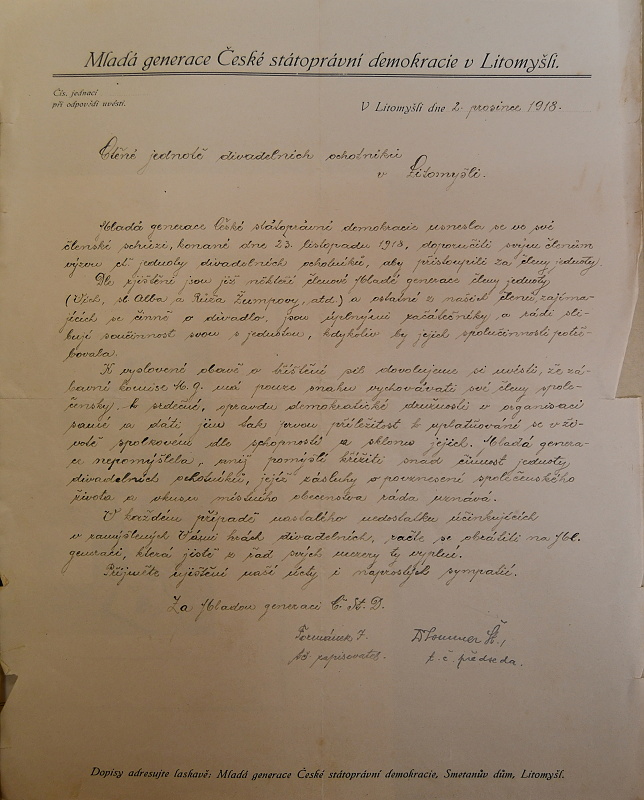 Mladá generace České státoprávní demokracie v Litomyšli.
Čís. jednací
při odpovědi uvésti.
V Litomyšli dne 2. prosince 1918.
Ctěné jednotě divadelních ochotníků
v Litomyšli.
Mladá generace České státoprávní demokracie usnesla se ve své
členské schůzi, konané dne 23. listopadu 1918, doporučiti svým členům
výzvu ct. jednoty divadelních ochotníků, aby přistoupili za členy jednoty.
Dle zjištění jsou již někteří členové Mladé generace členy jednoty
(Vích, sl. Alba a Růža Zumpovy, atd.) a ostatní z našich členů, zajíma-
jících se činně o divadlo, jsou úplnými začátečníky a rádi sli-
bují součinnost svou s jednotou, kdykoliv by jejich spoluúčinnosti potře-
bovala.
K vyslovené obavě o tříštění sil dovolujeme si uvésti, že zá-
bavní komise M. g. má pouze snahu vychovávati své členy spole-
čensky k srdečné, opravdu demokratické družnosti v organisaci
samé a dáti jim tak prvou příležitost k uplatňování se v ži-
votě spolkovém dle schopností a sklonu jejich. Mladá genera-
ce nepomýšlela, aniž pomýšlí křížiti snad činnost jednoty
divadelních ochotníků, jejíž zásluhy o povznesení společenského
života a vkusu místního obecenstva ráda uznává.
V každém případě nastalého nedostatku účinkujících
v zamýšlených Vámi hrách divadelních, račte se obrátiti na Ml.
generaci, která jistě z řad svých mezery ty vyplní.
Přijměte ujištění naší úcty i naprostých sympatií.
Za Mladou generaci Č. St. D.
Formánek J.
zapisovatel.
t. č. předseda.
Dopisy adresujte laskavě: Mladá generace České státoprávní demokracie, Smetanův dům, Litomyšl.